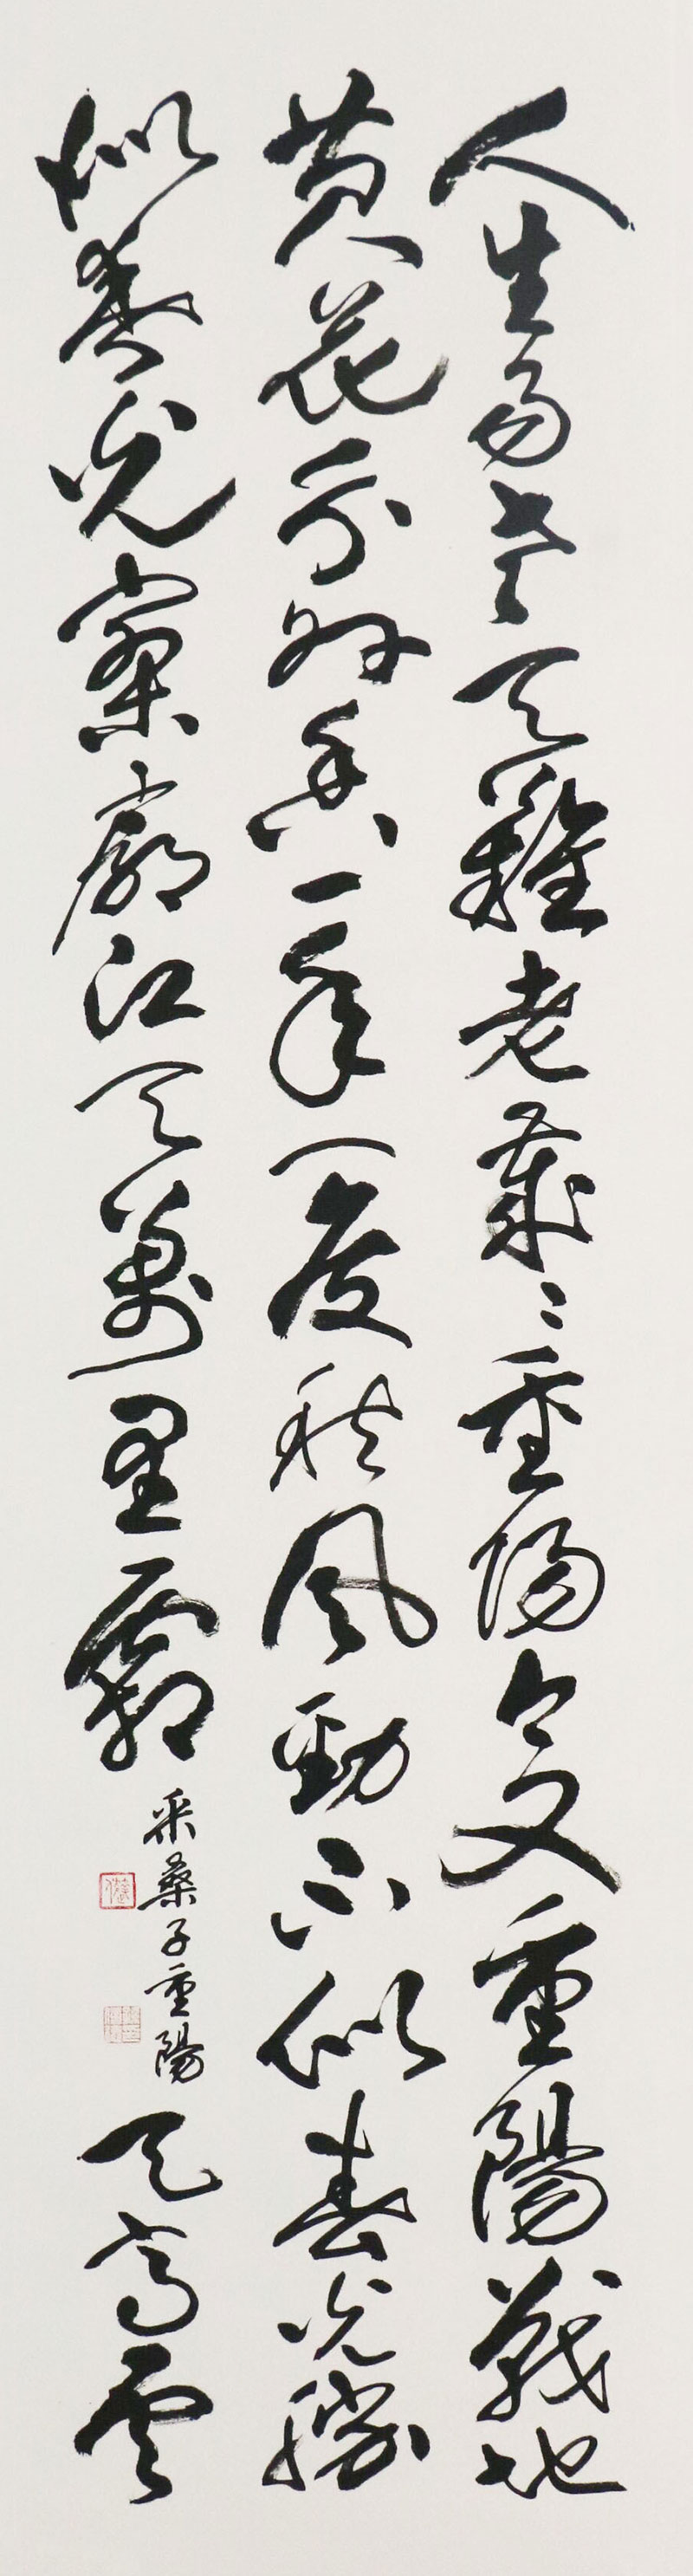 人生易老天難老歲々重陽今又重陽戰地
黃花分外香一年一度秋風勁不似春光勝
似春光寥廓江天萬里霜
采桑子重陽
天高雲